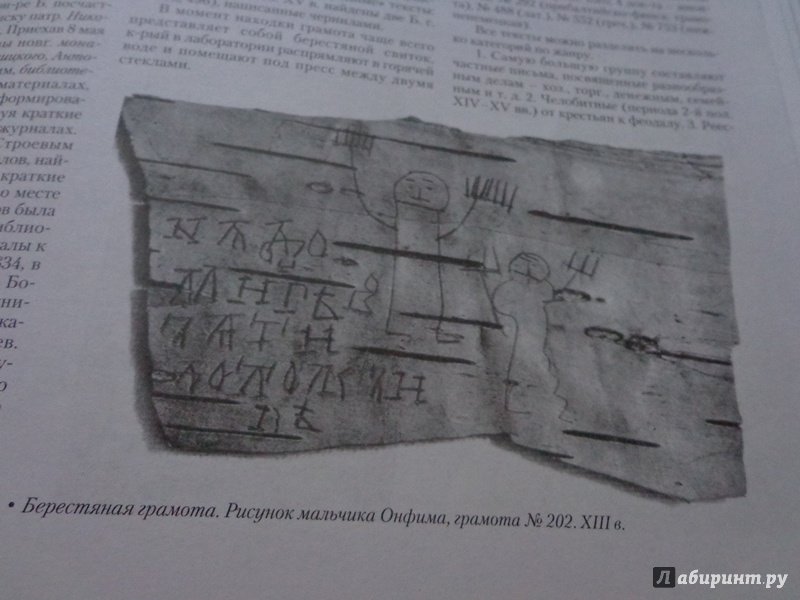 ре Б. посчаст-
ску патр. Нико-
Приехав 8 мая
ы новг. мона-
ицкого, Анто-
м, библиоте-
материалах.
формирова-
уя краткие
журналах.
Строевым
лов, най-
краткие
о месте
ов была
иблио-
алы к
834, в
Бо-
ни-
ка-
ев.
у-
о
написанные чернилами.
В момент находки грамота чаще всего
представляет собой берестяной свиток,
к-рый в лаборатории распрямляют в горячей
воде и помещают под пресс между двумя
стеклами.
Все тексты можно разделить на несколь-
ко категорий по жанру.
1. Самую большую группу составляют
частные письма, посвященные разнообраз-
ным делам – хоз., торг., денежным, семей-
ным и т. д. 2. Челобитные (периода 2-й пол.
XIV–XV вв.) от крестьян к феодалу. 3. Реес-
НАДО
МИТРѢВ
ЗѦТИ
ДОЛОЖЗИ
КѢ
• Берестяная грамота. Рисунок мальчика Онфима, грамота № 202. XIII в.
Лабиринт.ру